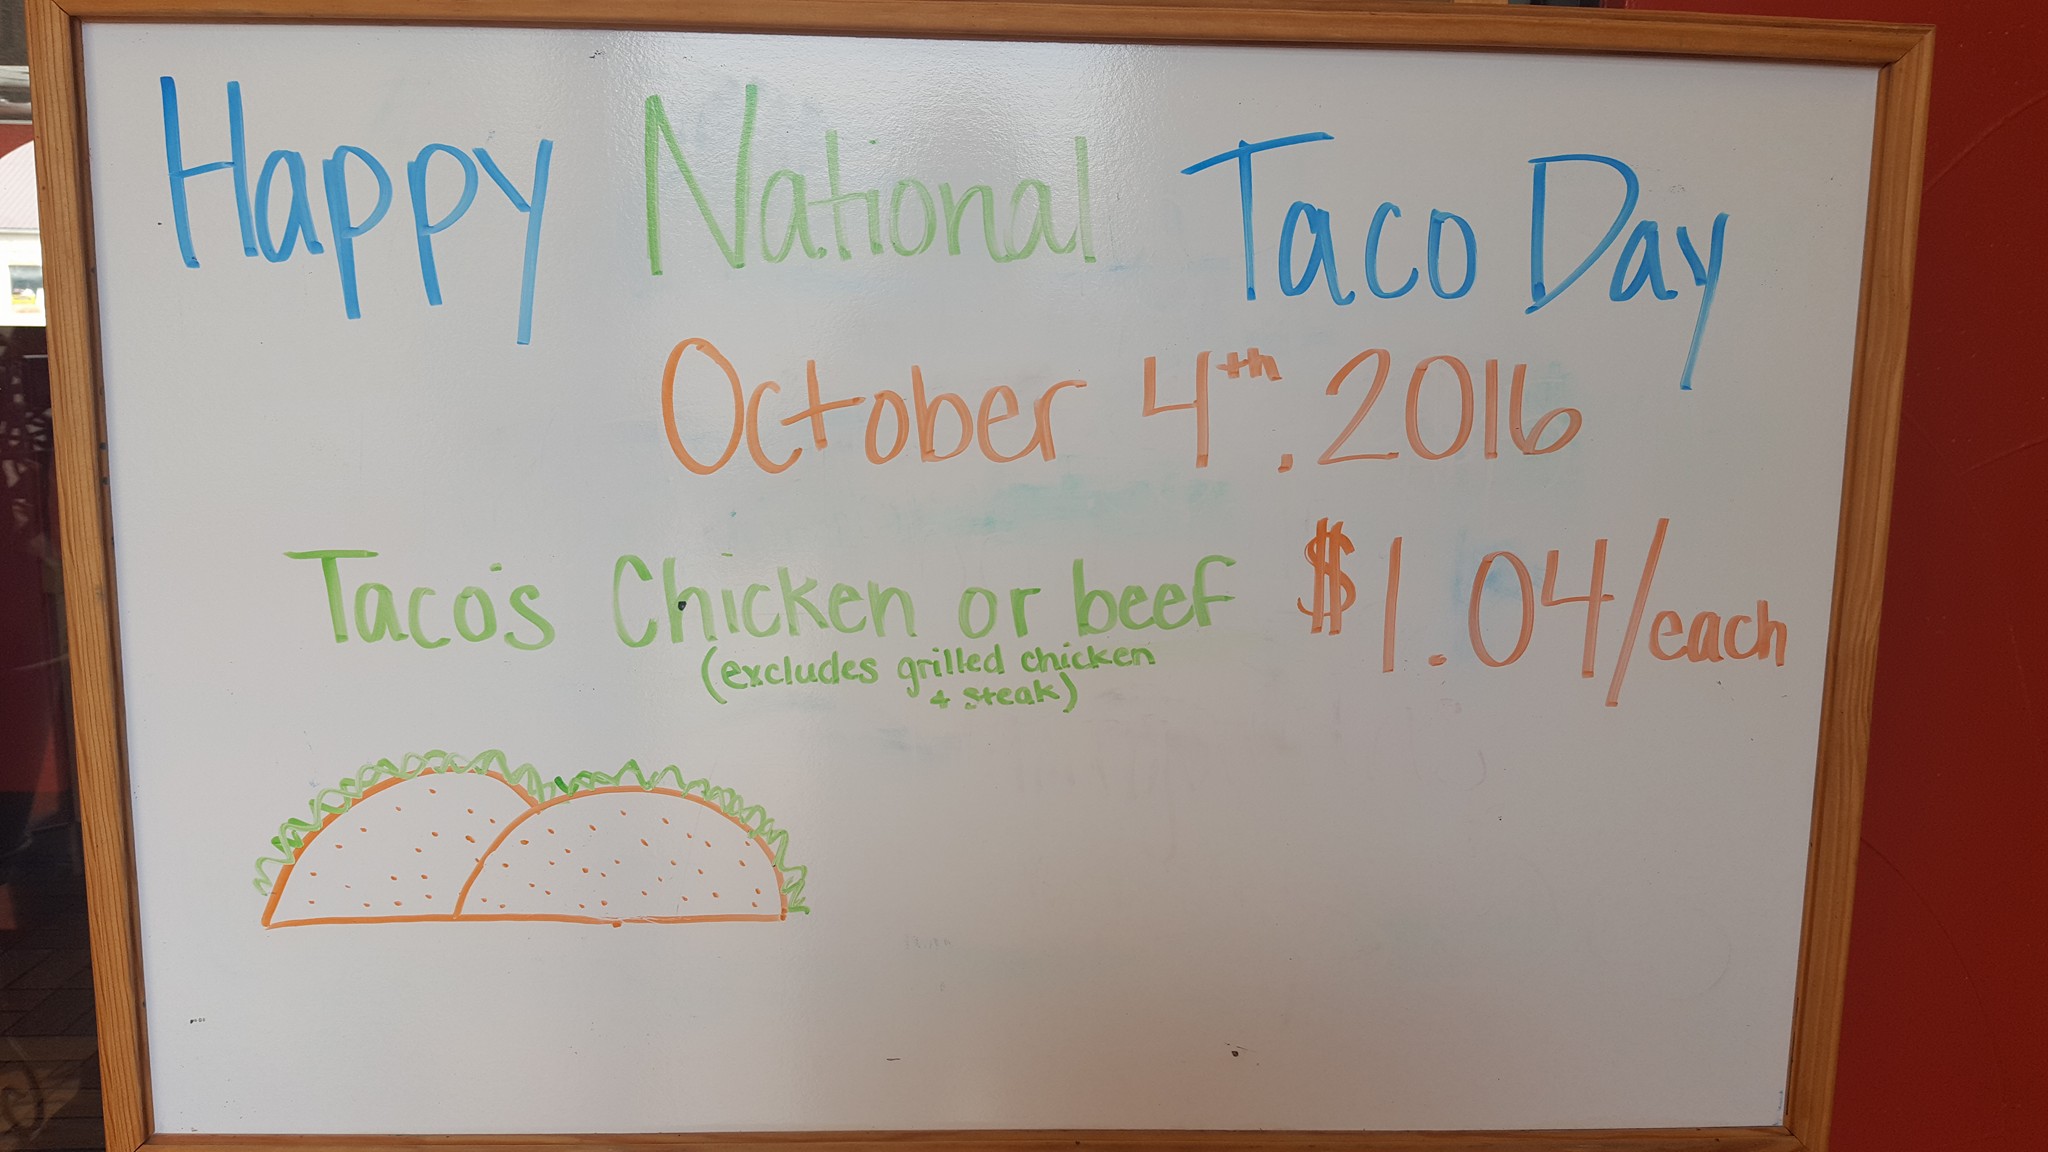 Happy National Taco Day
October 4th. 2016
Taco's Chicken or beef $1.04/each
(excludes grilled chicken
+ steak)